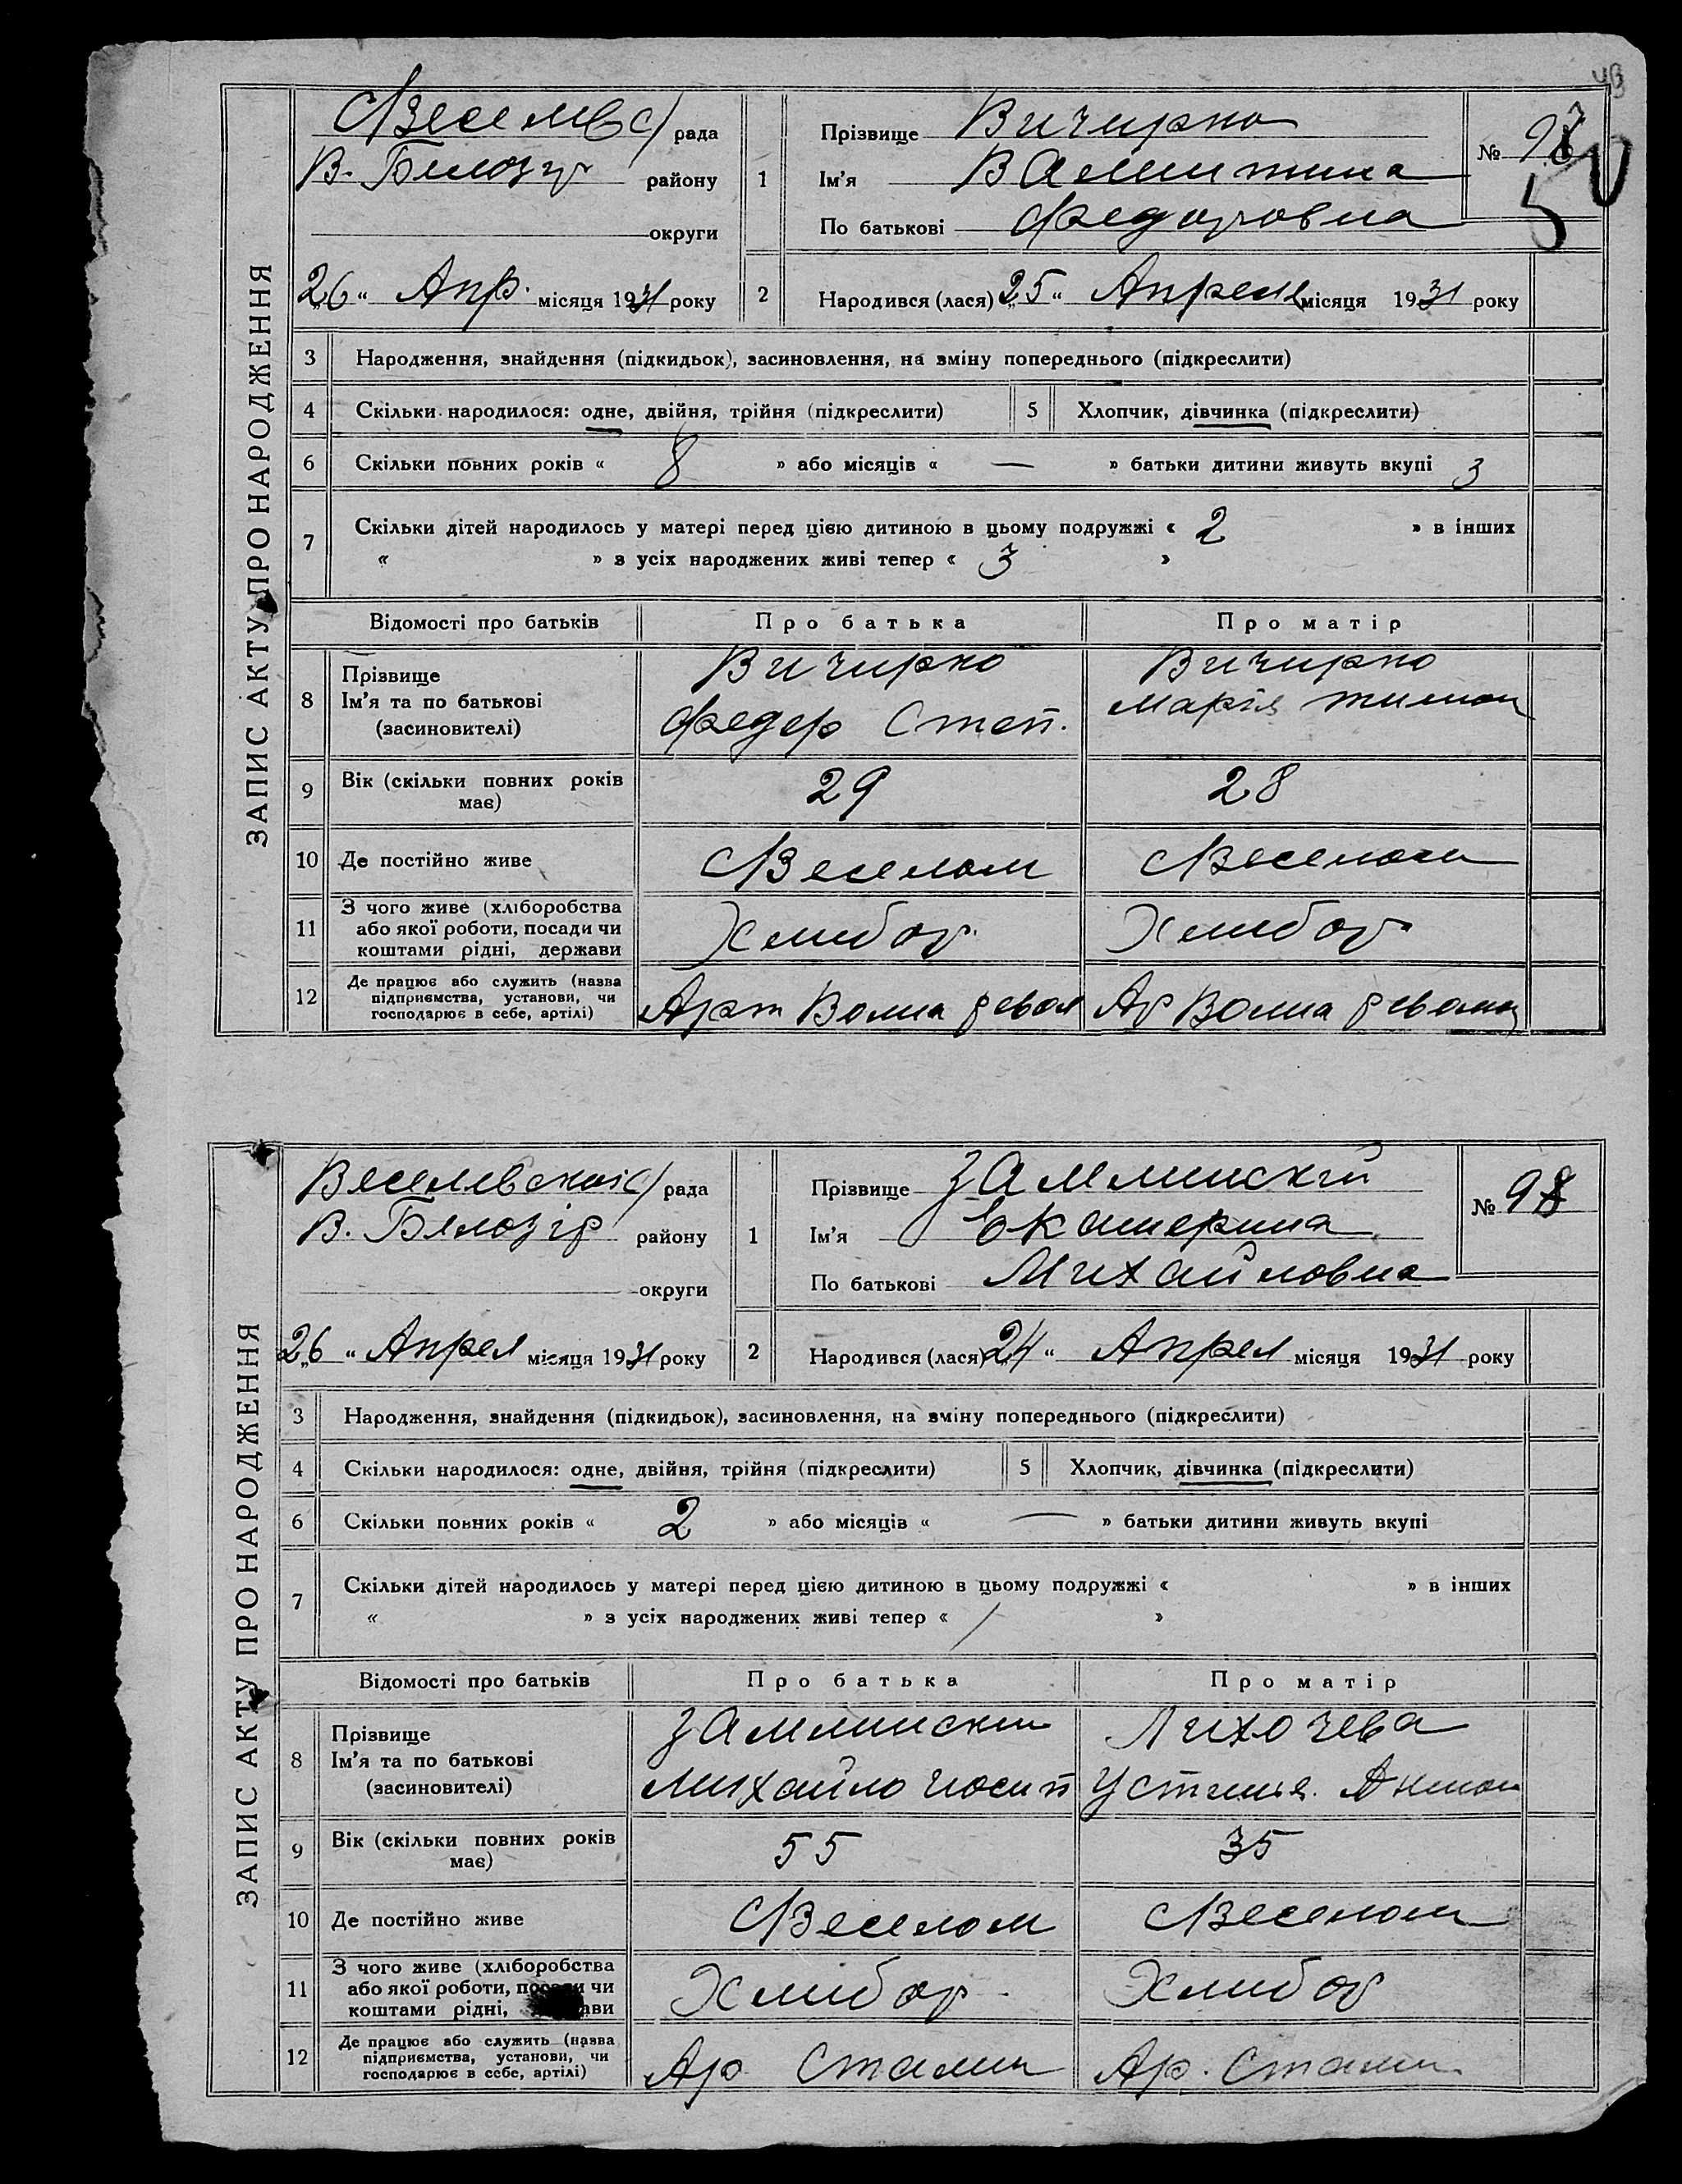 43
ЗАПИС АКТУ ПРО НАРОДЖЕННЯ
с/рада
В. Билозир району
округи
1
Прізвище Вичирко
Ім'я Валинтина
По батькові Федоровна
№ 97
50
„26“ Апр. місяця 1931 року
2 Народився (лася) „25“ Апреля місяця 1931 року
3 Народження, знайдення (підкидьок), засиновлення, на зміну попереднього (підкреслити)
4 Скільки народилося: одне, двійня, трійня (підкреслити) 5 Хлопчик, дівчинка (підкреслити)
6 Скільки повних років « 8 » або місяців « — » батьки дитини живуть вкупі 3
7 Скільки дітей народилось у матері перед цією дитиною в цьому подружжі « 2 » в інших
« » з усіх народжених живі тепер « 3 »
Відомості про батьків Про батька Про матір
8 Прізвище
Ім'я та по батькові
(засиновителі)
Вичирко
Федер Степ.
Вичирко
Мария Тимон
9 Вік (скільки повних років
має) 29 28
10 Де постійно живе с/Веселом с/Веселом
11 З чого живе (хліборобства
або якої роботи, посади чи
коштами рідні, держави
Хлибор. Хлибор
12 Де працює або служить (назва
підприємства, установи, чи
господарює в себе, артілі)
Арт Волна револ Ар Волна револю
ЗАПИС АКТУ ПРО НАРОДЖЕННЯ
Веселевской с/рада
В. Билозір району
округи
1
Прізвище Замлинский
Ім'я Екатерина
По батькові Михайловна
№ 98
„26“ Апрел місяця 1931 року
2 Народився (лася) „24“ Апрел місяця 1931 року
3 Народження, знайдення (підкидьок), засиновлення, на зміну попереднього (підкреслити)
4 Скільки народилося: одне, двійня, трійня (підкреслити) 5 Хлопчик, дівчинка (підкреслити)
6 Скільки повних років « 2 » або місяців « — » батьки дитини живуть вкупі
7 Скільки дітей народилось у матері перед цією дитиною в цьому подружжі « » в інших
« » з усіх народжених живі тепер « / »
Відомості про батьків Про батька Про матір
8 Прізвище
Ім'я та по батькові
(засиновителі)
Замлинский
Михайло Иосип
Лихочева
Устинья. Антон
9 Вік (скільки повних років
має) 55 35
10 Де постійно живе с/Веселом с/Веселом
11 З чого живе (хліборобства
або якої роботи, чи
коштами рідні,
Хлибор Хлибор
12 Де працює або служить (назва
підприємства, установи, чи
господарює в себе, артілі)
Ар. Сталин Ар. Сталин